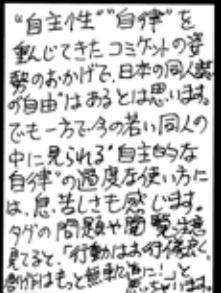 “自主性”“自律”を
重んじてきたコミケットの姿
勢のおかげで、日本の同人誌
の自由”はあるとは思います。
でも一方で今の若い同人の
中に見られる“自主的な
自律”の過度な使い方に
は、息苦しさも感じます。
タグの問題や閲覧注意
見てると、「行動はお行儀よく、
創作はもっと無軌道に!」と
思っちゃいます。